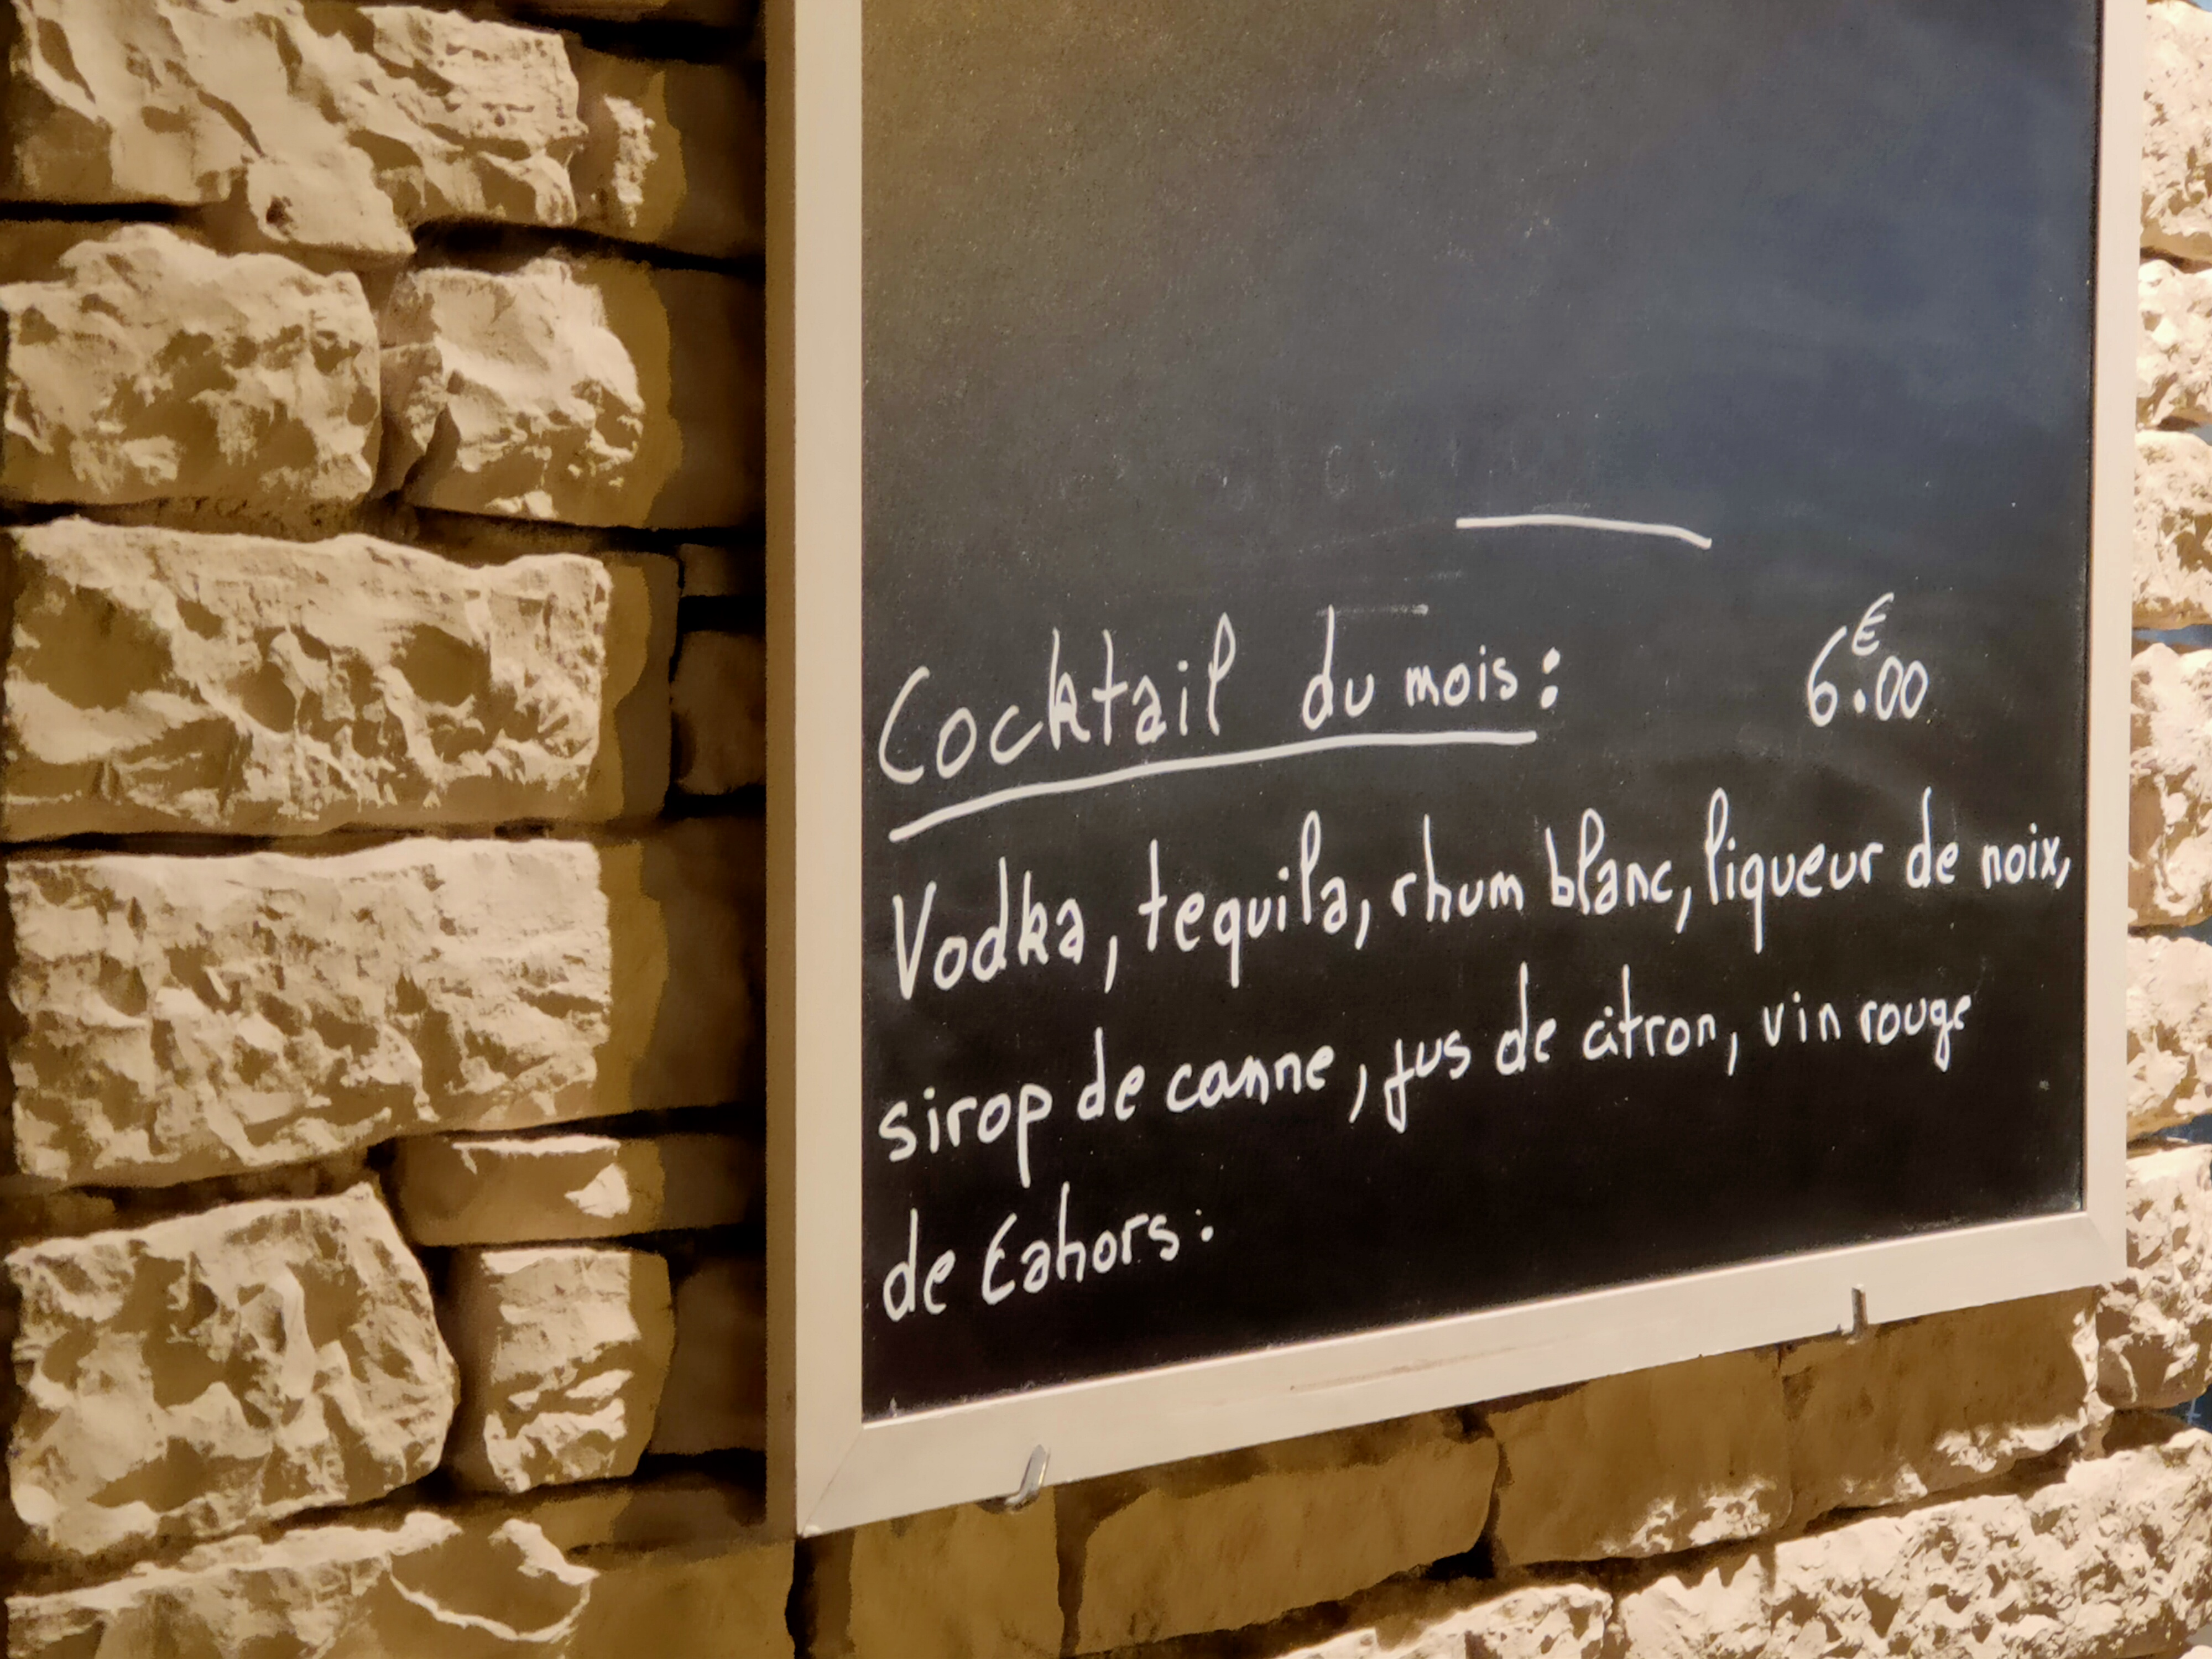 Cocktail du mois : 6.00€
Vodka, tequila, rhum blanc, liqueur de noix,
sirop de canne, jus de citron, vin rouge
de Cahors.